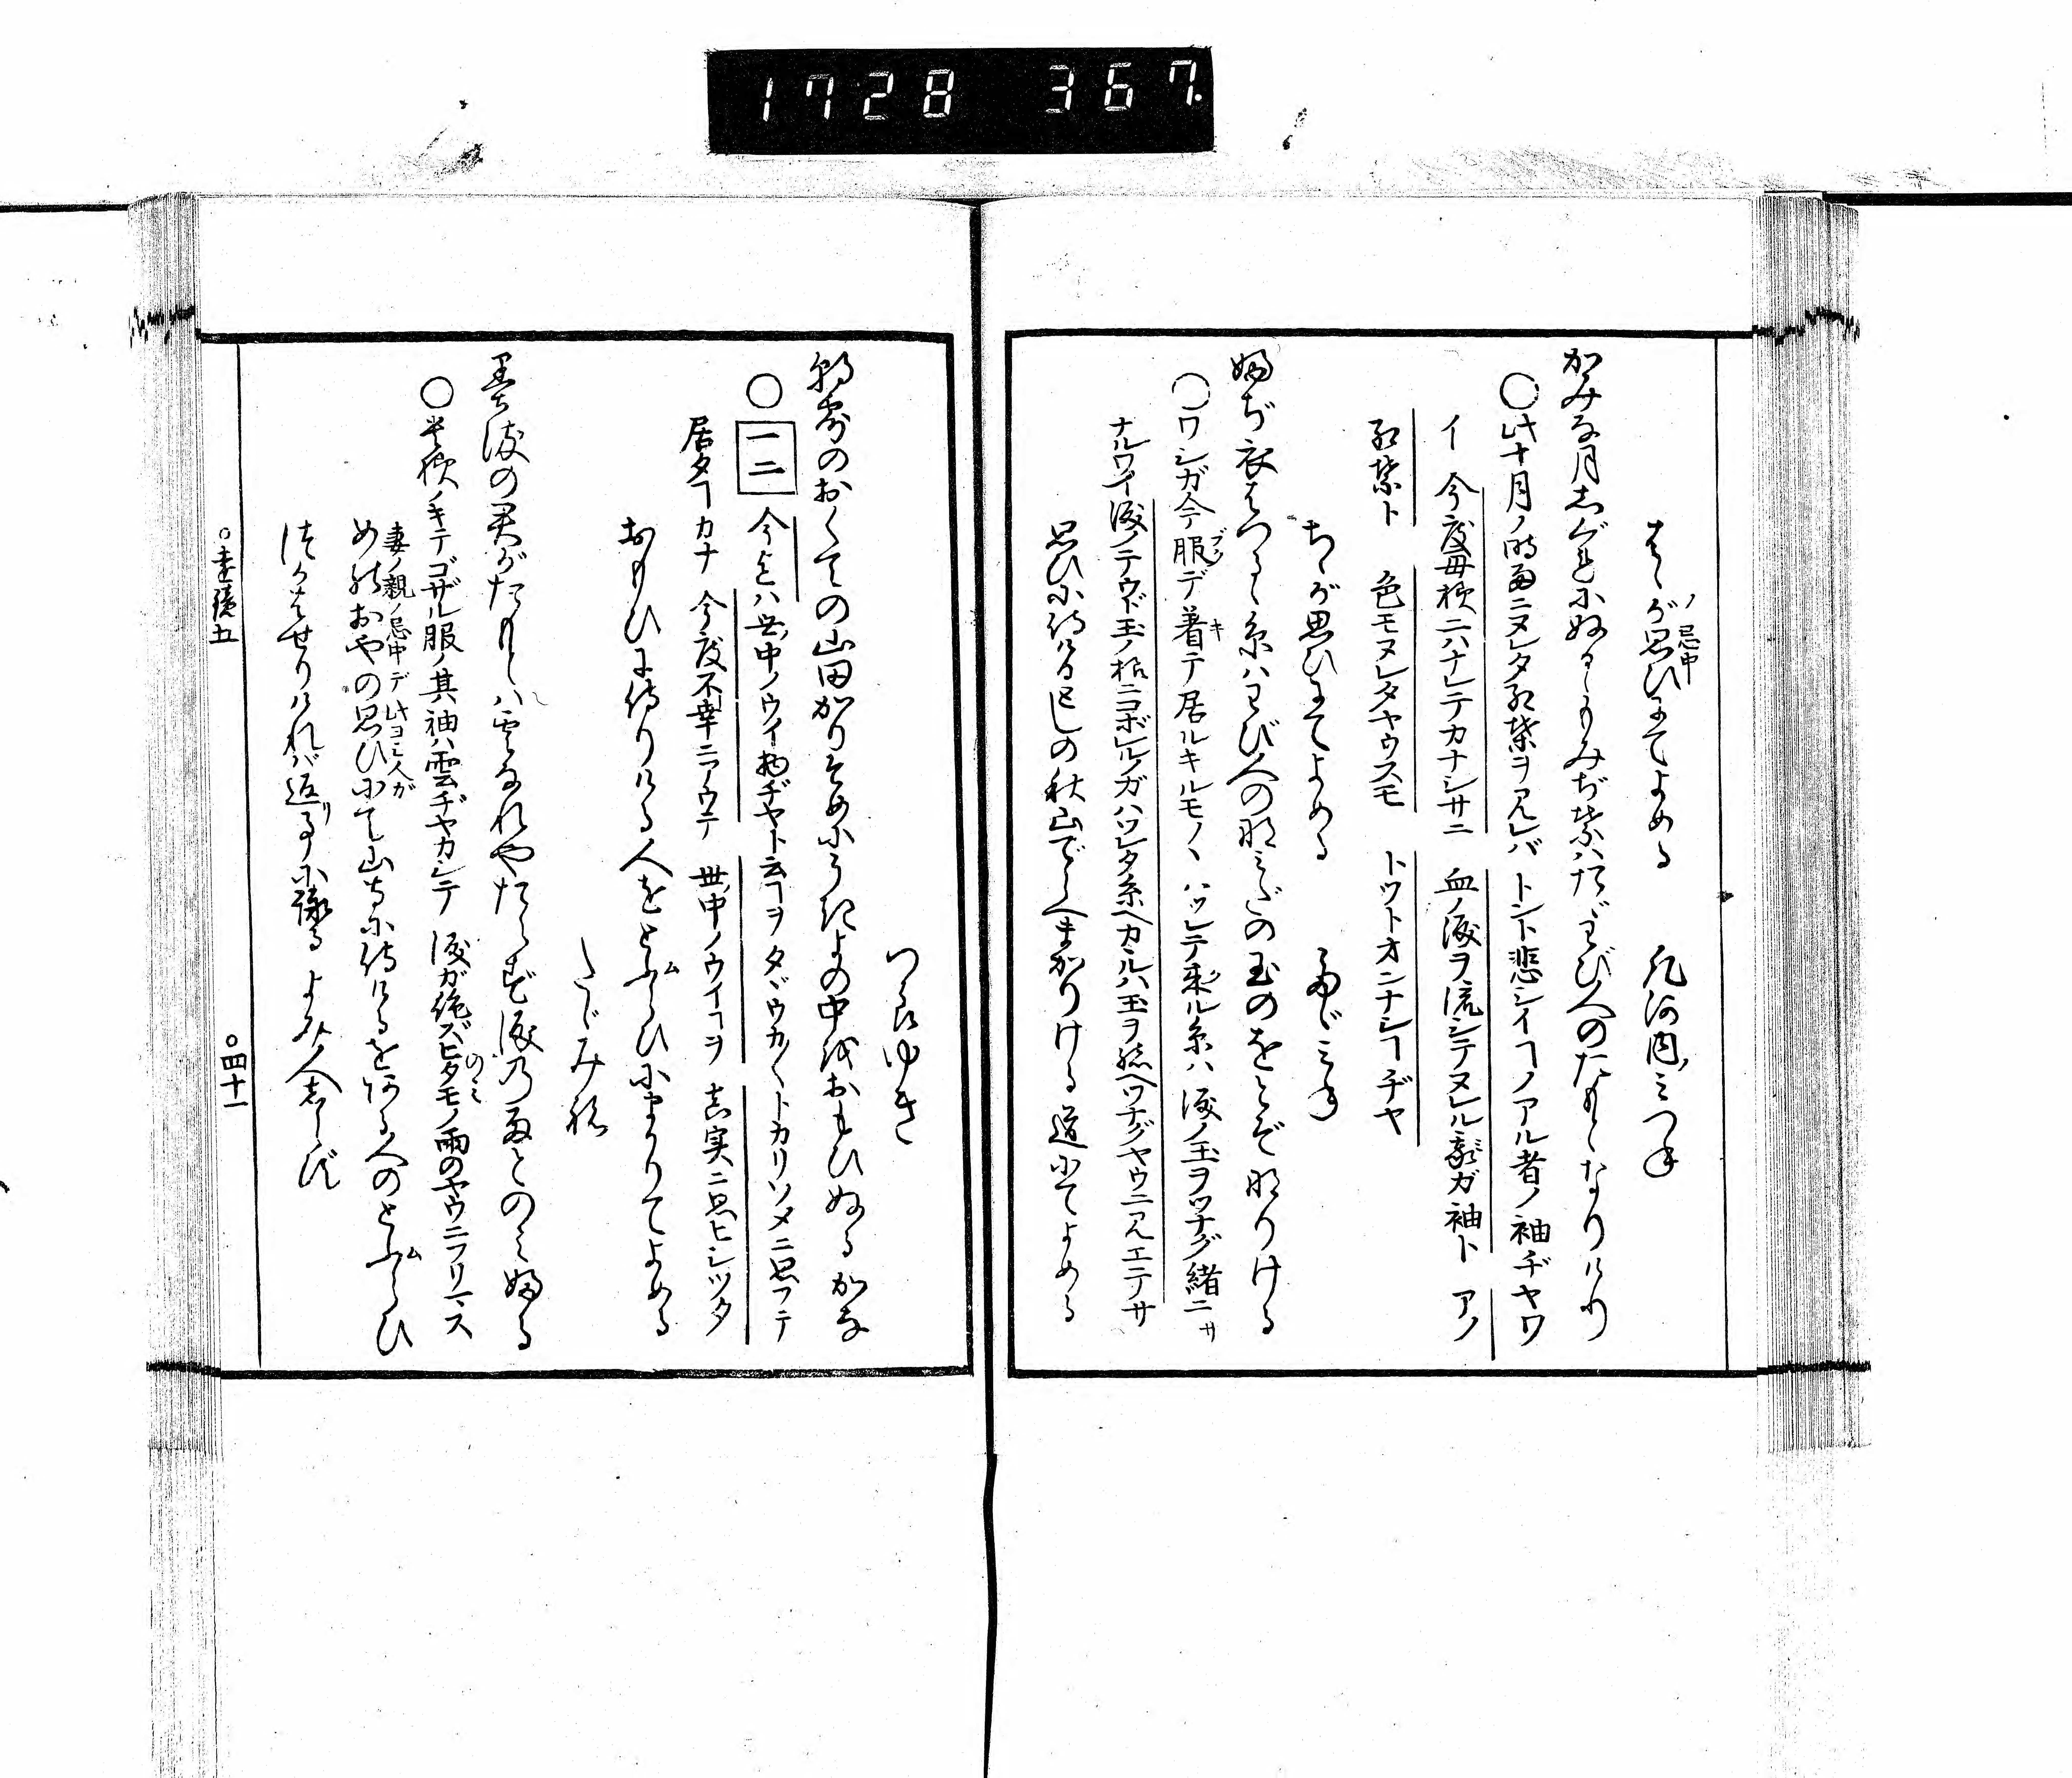 1728 367
はゝが思ひにてよめる　凡河内ノみつね
ノ忌中
かみな月しぐれにぬるゝもみぢ葉ハたゞわび人のたもとなりけり
○此十月ノ時雨ニヌレタ紅葉ヲ見レバ　トント悲シイヿノアル者ノ袖ヂヤワ
イ　今度母様ニハナレテカナシサニ　血ノ涙ヲ流シテヌレル我ガ袖ト　アノ
紅葉ト　色モヌレタヤウスモ　トツトオンナシヿヂヤ
ちゝが思ひにてよめる　たゞみね
ふぢ衣はつるゝ糸ハわび人の涙の玉のをとぞなりける
○ワシガ今服デ着テ居ルキルモノヽ　ハツレテ来ル糸ハ　涙ノ玉ヲツナグ緒ニサ
ブク
キ
ナルワイ涙ノテウド玉ノ様ニコボレルノガハツレタ糸ヘカヽルハ玉ヲ緒ヘツナグヤウニ見エテサ
思ひに侍りけるとしの秋山でらへまかりける道にてよめる
つらゆき
朝露のおくての山田かりそめにうき世の中をおもひぬるかな
○一二　今迄ハ世ノ中ノウイ物ヂヤト云ヿヲ　タヾウカ〳〵トカリソメニ思フテ
居タヿカナ　今度不幸ニアウテ　世ノ中ノウイヿヲ　真実ニ思ヒシツタ
おもひに侍りける人をとふらひにまかりてよめる
ム
たゞみね
墨染の君がたもとハ雲なれやたえず涙の雨とのみふる
○其様ノキテゴザル服ノ其袖ハ雲ヂヤカシテ　涙ガ絶ズヒタモノ雨のヤウニフリマス
のみ
妻ノ親ノ忌中デ此ヨミ人が
めのおやの思ひにて山寺に侍りけるをある人のとふらひ
ム
つかはせりけれバ返リ事に詠る　よみ人しらず
○遠鏡五
○四十一